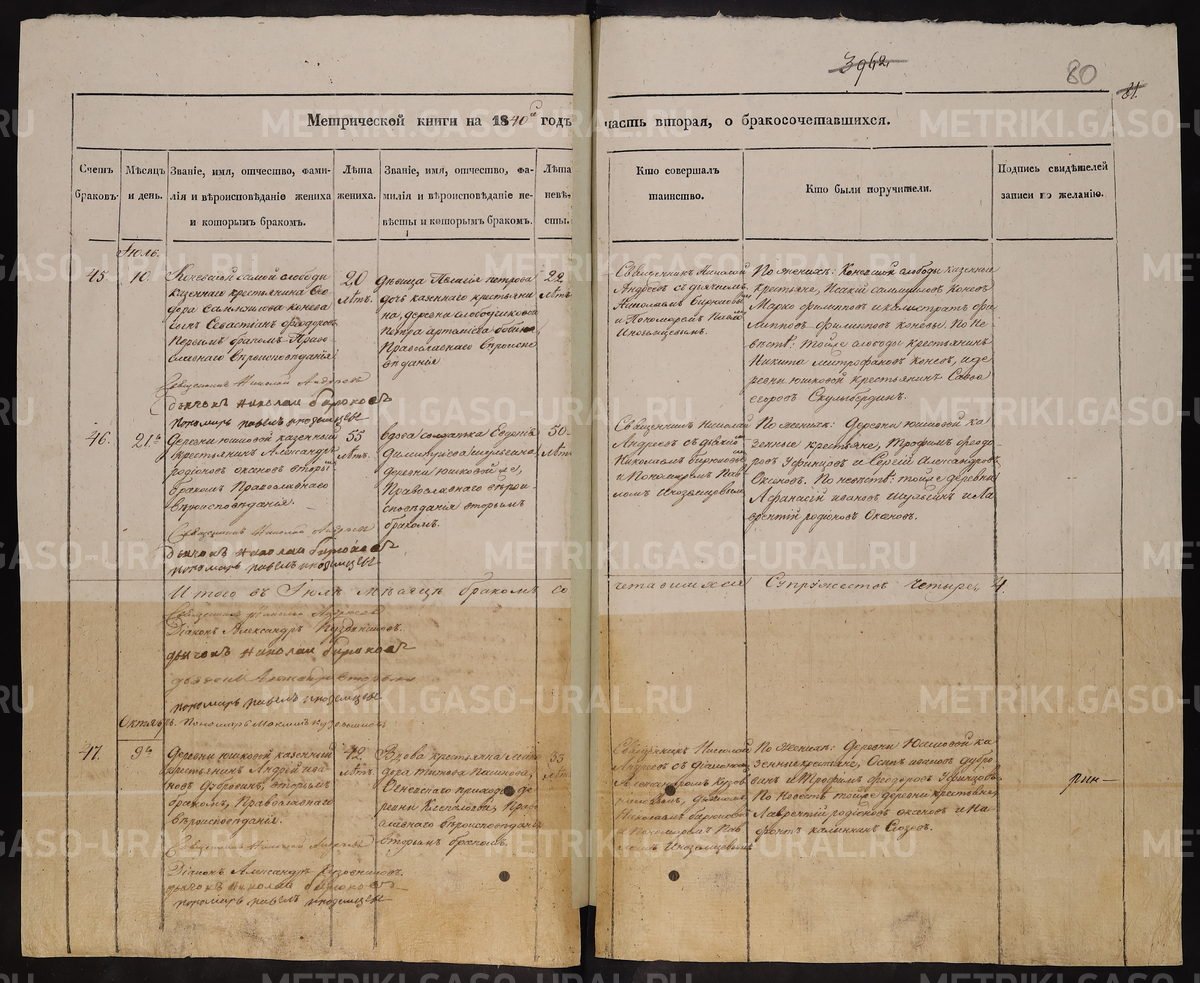 3962
80
81.
Метрической книги на 1840й годъ часть вторая, о бракосочетавшихся.
Счетъ браковъ.
Мѣсяцъ и день.
Званіе, имя, отчество, фами-
лія и вѣроисповѣданіе жениха
и которымъ бракомъ.
Лѣта
жениха.
Званіе, имя, отчество, фа-
милія и вѣроисповѣданіе не-
вѣсты и которымъ бракомъ.
Лѣта
невѣ-
сты.
Кто совершалъ
таинство.
Кто были поручители.
Подпись свидѣтелей
записи по желанію.
Іюль.
45.
10.
слободы
казеннаго крестьянина Ѳео
дора Конева
сынъ Севастіанъ Ѳеодоровъ
Первымъ бракомъ Право
славнаго вѣроисповѣданія
20
лѣтъ.
дѣвица Петрова
дочь казеннаго крестьяни
на, деревни
Петра
Православнаго вѣроиспо
вѣданія
22
лѣтъ
Священникъ Николай
Андреевъ съ дьячкомъ
Николаемъ Бирюковымъ
и Пономаремъ Павломъ
Иноземцевымъ.
По женихѣ: Коневской слободы казенные
крестьяне, Коневъ
Марко Филиповъ и
Филиповъ Коневы. По не
вѣстѣ: тойже слободы крестьянинъ
Никита Митрофановъ Коневъ, и де
ревни Юшковой крестьянинъ Савва
Скутырдинъ.
Священникъ Николай Андреевъ
дьячекъ Николай Бирюковъ
пономарь Павелъ Иноземцевъ
46.
21го
Деревни Юшковой казенный
крестьянинъ Александръ
Родіоновъ Окановъ вторы
бракомъ Православнаго
вѣроисповѣданія.
55
лѣтъ.
вдова солдатка Евдокія
Димитріева
деревни Юшковой же,
Православнаго вѣрои
сповѣданія вторымъ
бракомъ.
50
лѣтъ
Священникъ Николай
Андреевъ съ дьячкомъ
Николаемъ Бирюковымъ
и Пономаремъ Пав
ломъ Иноземцевымъ
По женихѣ: Деревни Юшковой ка
зенные крестьяне, Трофимъ Ѳеодо
ровъ Уфинцовъ и Сергій Александровъ
Окановъ. По невѣстѣ: тойже деревни
Афанасій Ивановъ и Ла
врентій Родіоновъ Окановъ.
Священникъ Николай Андреевъ
дьячекъ Николай Бирюковъ
пономарь Павелъ Иноземцевъ
Итого въ Іюлѣ мѣсяцѣ бракомъ сочетавшихся Супружествъ четыре, 4.
Священникъ Николай Андреевъ
Діаконъ Александръ Кузовниковъ.
дьячекъ Николай Бирюковъ
пономарь Павелъ Иноземцевъ
Пономарь Максимъ
Октябрь.
47.
9го
Деревни Юшковой казенный
крестьянинъ Андрей Ива
новъ Дубровинъ, вторымъ
бракомъ, Православнаго
вѣроисповѣданія.
42
лѣтъ.
Вдова крестьянка
Пашкова,
прихода де
ревни Право
славнаго вѣроисповѣданія
вторымъ бракомъ.
33
лѣтъ
Священникъ Николай
Андреевъ съ Діакономъ
Александромъ Кузов
никовымъ, дьячкомъ
Николаемъ Бирюковымъ
и Пономаремъ Пав
ломъ Иноземцевымъ
По женихѣ: Деревни Юшковой ка
зенные крестьяне, Осипъ Ивановъ Дубро
винъ и Трофимъ Ѳеодоровъ Уфинцовъ.
По невѣстѣ тойже деревни крестьяне
Лаврентій Родіоновъ Окановъ и
Калининъ
Священникъ Николай Андреевъ
Діаконъ Александръ Кузовниковъ.
дьячекъ Николай Бирюковъ
пономарь Павелъ Иноземцевъ
METRIKI.GASO-URAL.RU